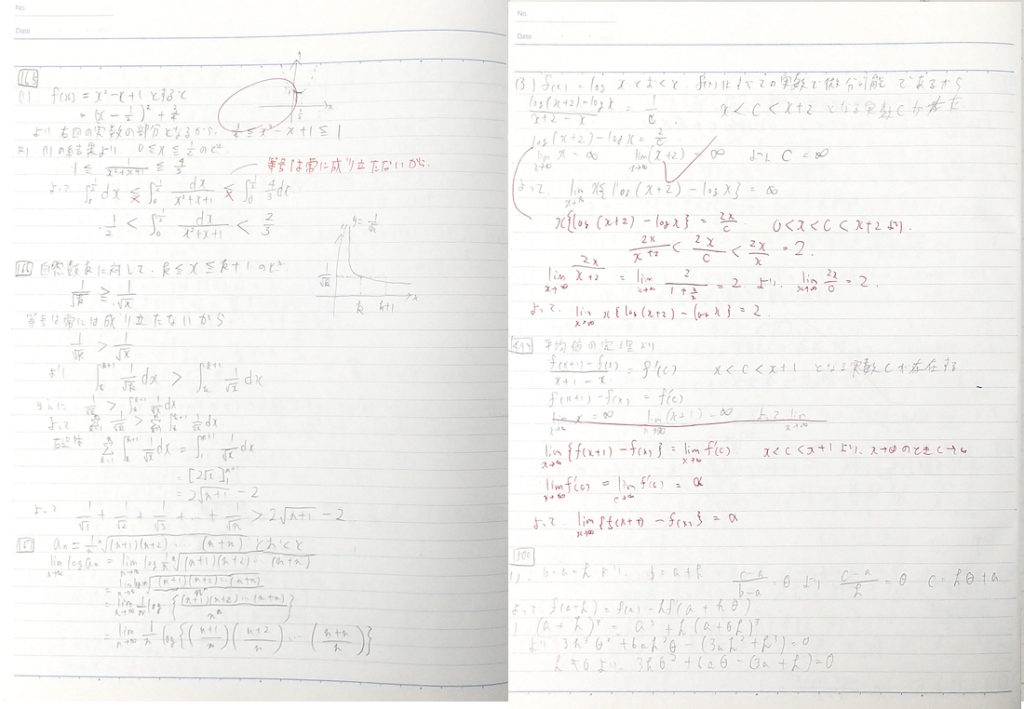 No.
Date
165
(1) f(x) = x² - x + 1 とすると
= (x - 1/2)² + 3/4
より右図の実数の部分となるから. 3/4 ≦ x² - x + 1 ≦ 1
2) (1)の結果より. 0 ≦ x ≦ 1/2 のとき
1 ≦ 1/(x²+x+1) ≦ 4/3
等号は常に成り立たないから.
よって ∫₀^{1/2} dx ≦ ∫₀^{1/2} dx/(x²+x+1) ≦ ∫₀^{1/2} 4/3 dx
1/2 < ∫₀^{1/2} dx/(x²+x+1) < 2/3
166 自然数kに対して. k ≦ x ≦ k+1 のとき
1/√k ≧ 1/√x
等号は常には成り立たないから
1/√k > 1/√x
より ∫_k^{k+1} 1/√k dx > ∫_k^{k+1} 1/√x dx
1/√k > ∫_k^{k+1} 1/√x dx
よって Σ_{k=1}^{n} 1/√k > Σ_{k=1}^{n} ∫_k^{k+1} 1/√x dx
Σ_{k=1}^{n} ∫_k^{k+1} 1/√x dx = ∫_1^{n+1} 1/√x dx
= [2√x]_1^{n+1}
= 2√(n+1) - 2
よって 1/√1 + 1/√2 + 1/√3 + … + 1/√n > 2√(n+1) - 2
167 aₙ = 1/n ⁿ√((n+1)(n+2)……(n+n)) とおくと
lim_{n→∞} log aₙ = lim_{n→∞} log 1/n ⁿ√((n+1)(n+2)…(n+n))
= lim_{n→∞} log ⁿ√((n+1)(n+2)…(n+n)/nⁿ)
= lim_{n→∞} 1/n log {(n+1)(n+2)…(n+n)/nⁿ}
= lim_{n→∞} 1/n log {((n+1)/n)((n+2)/n)…((n+n)/n)}
No.
Date
(3) f(x) = log x とおくと f(x)はすべての実数で微分可能であるから
(log(x+2) - log x)/(x+2-x) = 1/c. x < c < x+2 となる実数cが存在
log(x+2) - log x = 2/c
lim_{x→∞} x = ∞ lim_{x→∞} (x+2) = ∞ より c = ∞
よって. lim_{x→∞} x{log(x+2) - log x} = ∞
x{log(x+2) - log x} = 2x/c 0 < x < c < x+2 より.
2x/(x+2) < 2x/c < 2x/x = 2.
lim_{x→∞} 2x/(x+2) = lim_{x→∞} 2/(1+2/x) = 2 より. lim_{x→∞} 2x/c = 2.
よって. lim_{x→∞} x{log(x+2) - log x} = 2.
平均値の定理より
(f(x+1) - f(x))/(x+1-x) = f'(c) x < c < x+1 となる実数cが存在する
f(x+1) - f(x) = f'(c)
lim_{x→∞} x = ∞ lim_{x→∞} (x+1) = ∞ よって lim_{x→∞}
lim_{x→∞} {f(x+1) - f(x)} = lim_{x→∞} f'(c) x < c < x+1 より. x→∞ のとき c→∞
lim_{x→∞} f'(c) = lim_{c→∞} f'(c) = a
よって. lim_{x→∞} {f(x+1) - f(x)} = a
b - a = h より. b = a+h (c-a)/(b-a) = θ より (c-a)/h = θ c = hθ + a
よって f(a+h) = f(a) + hf'(a+hθ)
より 3h²θ² + 6ahθ - (3ah + h²) = 0
h ≠ 0 より. 3hθ² + 6aθ - (3a + h) = 0